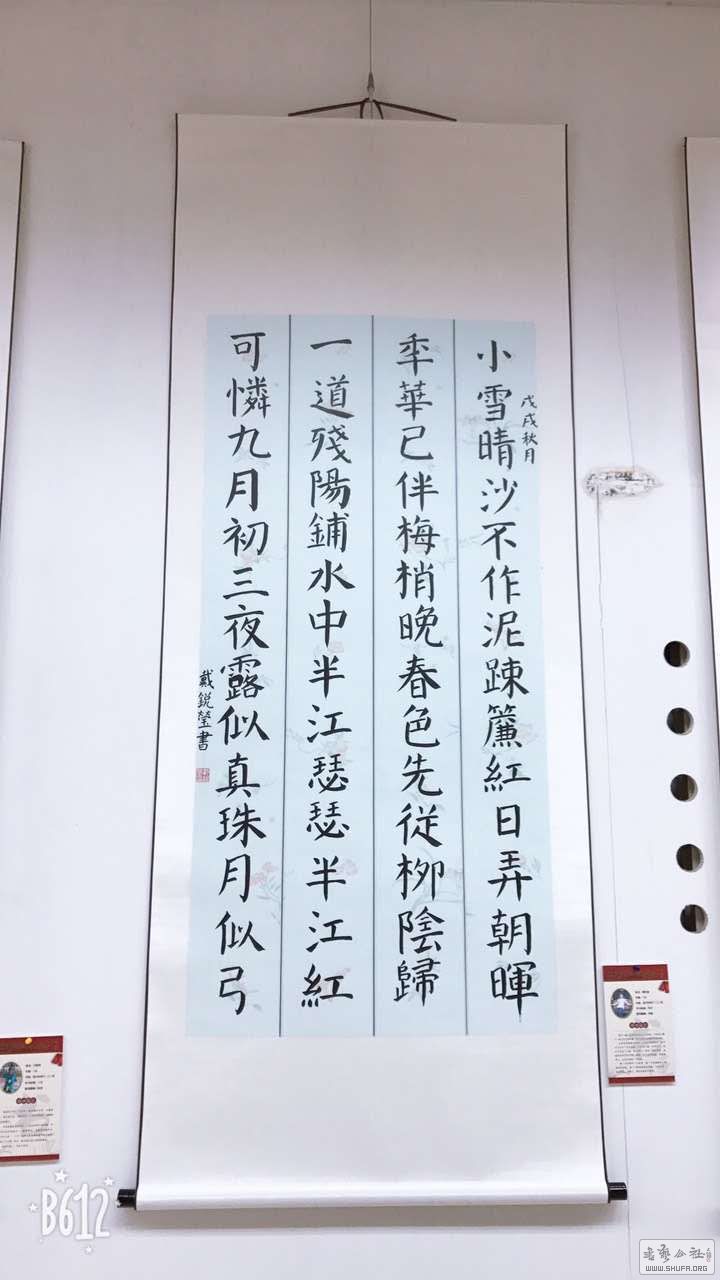 小雪晴沙不作泥踈簾紅日弄朝暉
戊戌秋月
秊華已伴梅梢晚春色先從柳陰歸
一道残陽鋪水中半江瑟瑟半江紅
可憐九月初三夜露似真珠月似弓
戴銳瑩書
B612
WWW.SHUFA.ORG